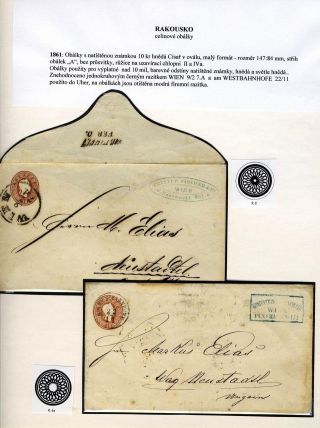 RAKOUSKO
celinové obálky
1861: Obálky s natištěnou známkou 10 kr hnědá Císař v oválu, malý formát - rozměr 147:84 mm, střih
obálek „A", bez průsvitky, růžice na uzavírací chlopni II a IVa.
Obálky použity pro výplatné nad 10 mil, barevné odstíny natištěné známky, hnědá a světle hnědá.
Znehodnoceno jednokruhovým černým razítkem WIEN 9/2 7.A a am WESTBAHNHOFE 22/11
použito do Uher, na obálkách jsou otištěna modrá firemní razítka.
WIEN
Herrn M. Elias
Neustadtl
Herrn
Markus Elias
Waag Neustadtl
Ungarn